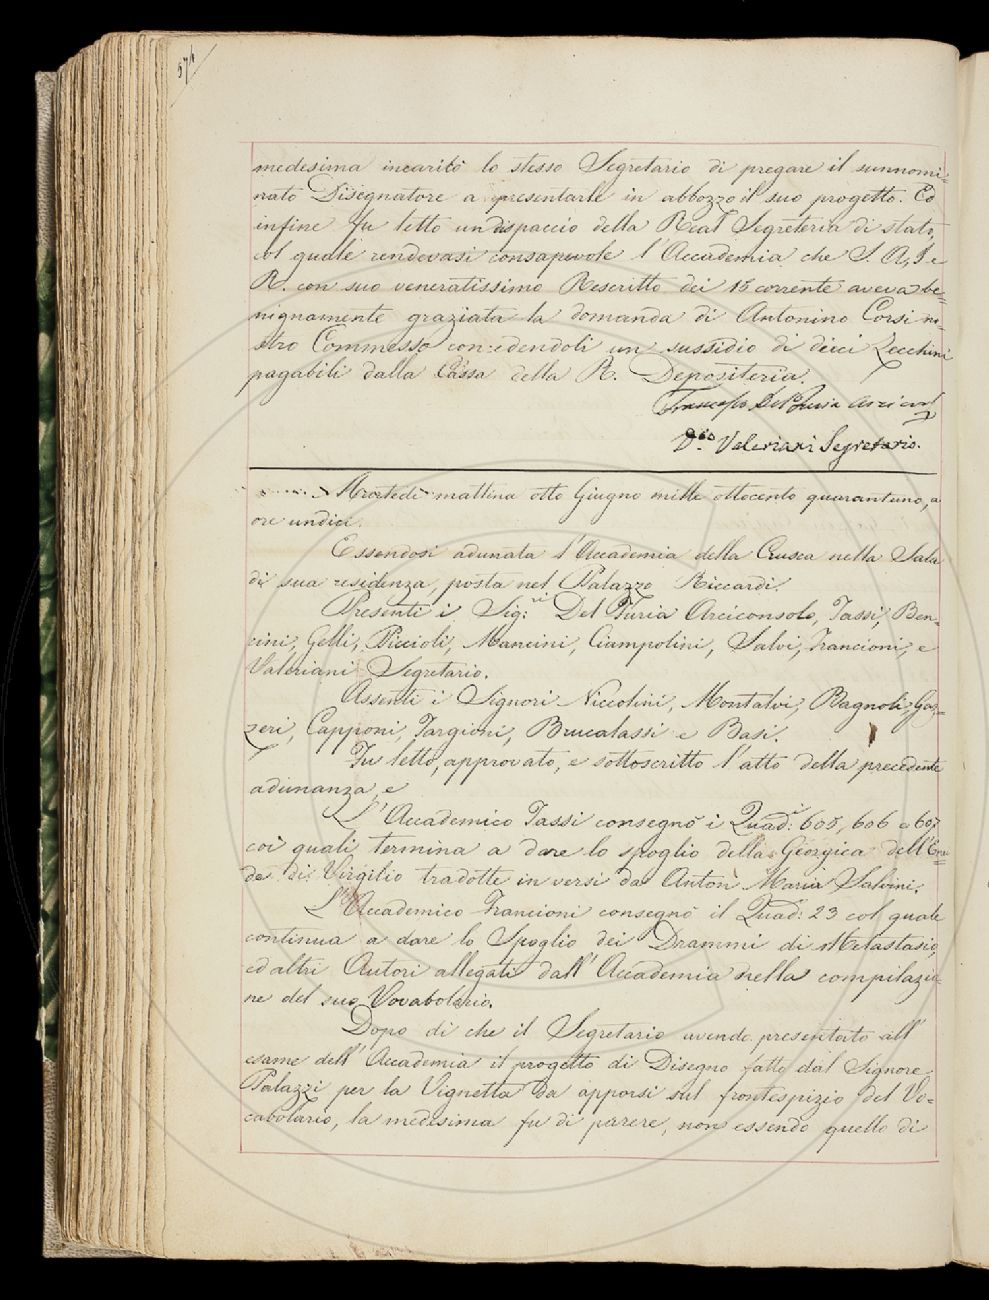 574
medesima incaricò lo stesso Segretario di pregare il sunnomi=
nato Disegnatore a presentarle in abbozzo il suo progetto. Ed
infine fu letto un dispaccio della Real Segreteria di stato,
col quale rendevasi consapevole l'Accademia che S. A. I. e
R. con suo veneratissimo Rescritto dei 15 corrente aveva be=
nignamente graziata la domanda di Antonino Corsi no=
stro Commesso concedendoli un sussidio di dieci Zecchini
pagabili dalla Cassa della R. Depositeria.
Francesco Del Furia Arcicons.
D.co Valeriani Segretario.
Martedì mattina otto Giugno mille ottocento quarantuno, a
ore undici.
Essendosi adunata l'Accademia della Crusca nella Sala
di sua residenza, posta nel Palazzo Riccardi.
Presenti i Sig:ri Del Furia Arciconsolo, Tassi, Ben=
cini, Gelli, Piccioli, Mancini, Ciampolini, Salvi, Francioni, e
Valeriani Segretario.
Assenti i Signori Niccolini, Montalvi, Bagnoli, Gaz=
zeri, Capponi, Targioni, Brucalassi e Basi.
Fu letto, approvato, e sottoscritto l'atto della precedente
adunanza, e
L'Accademico Tassi consegnò i Quad:i 605, 606 e 607
coi quali termina a dare lo spoglio della Georgica dell'Enei=
de di Virgilio tradotte in versi da Anton Maria Salvini.
L'Accademico Francioni consegnò il Quad: 23 col quale
continua a dare lo Spoglio dei Drammi di Metastasio,
ed altri Autori allegati dall'Accademia nella compilazio=
ne del suo Vocabolario.
Dopo di che il Segretario avendo presentato all'
esame dell'Accademia il progetto di Disegno fatto dal Signore
Palazzi per la Vignetta da apporsi sul frontespizio del Vo=
cabolario, la medesima fu di parere, non essendo quello di